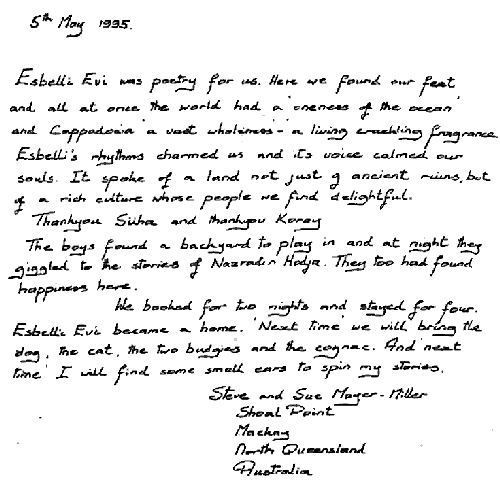 5th May 1995.
Esbelli Evi was poetry for us. Here we found our feet
and all at once the world had a 'oneness of the ocean'
and Cappadocia 'a vast wholeness' - a living crackling fragrance.
Esbelli's rhythms charmed us and its voice calmed our
souls. It spoke of a land not just of ancient ruins, but
of a rich culture whose people we find delightful.
Thankyou Süha and thankyou Koray
The boys found a backyard to play in and at night they
giggled to the stories of Nazradin Hodja. They too had found
happiness here.
We booked for two nights and stayed for four.
Esbelli Evi became a home. 'Next time' we will bring the
dog, the cat, the two budgies and the cognac. And 'next
time' I will find some small ears to spin my stories.
Steve and Sue Mayer-Miller
Shoal Point
Mackay
North Queensland
Australia